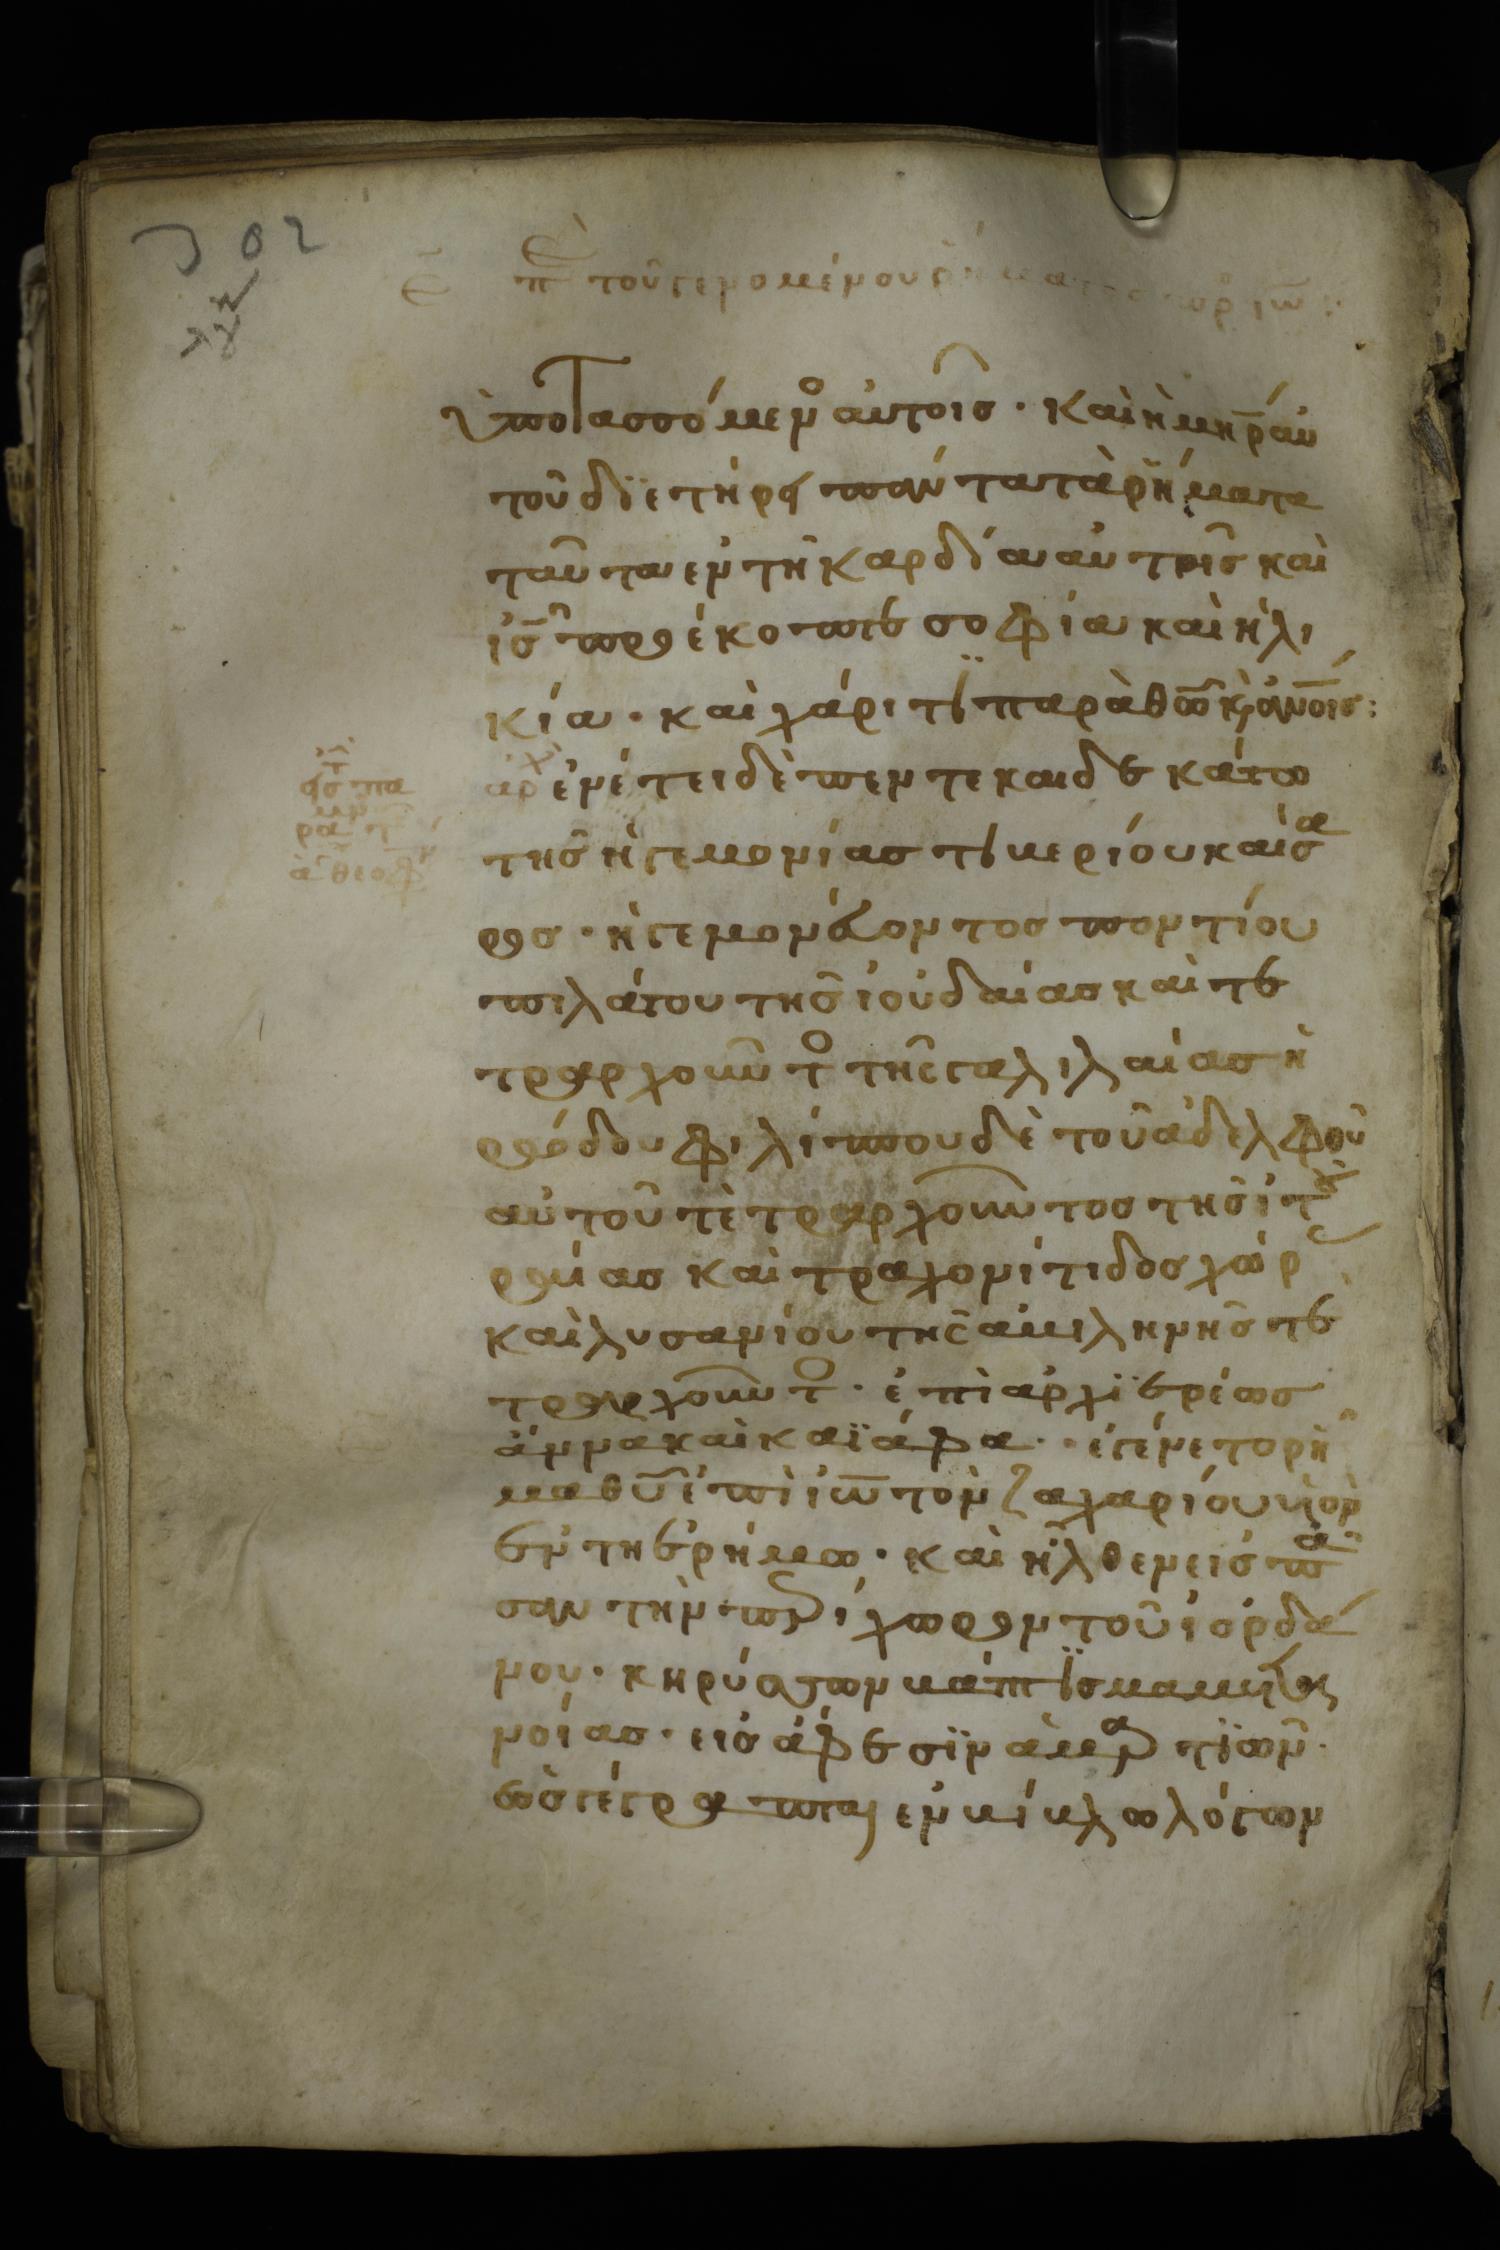 302
τοῦ γενομένου ῥήματος πρ ιω :
ὑποτασσόμενο αὐτοῖσ · καὶ ἡ μηρ αὐ
τοῦ διετήρει πάντα τὰ ῥήματα
ταῦτα ἐν τῆ καρδία αὐτῆσ καὶ
ισ προέκοπτε σοφία καὶ ἡλι
κία · καὶ χάριτι παρὰ θω κ ανοισ :
αρχ ἐν ἔτει δὲ πεντεκαιδεκάτω
τῆσ ἡγεμονίασ τιβερίου καίσα
ροσ · ἡγεμονεύοντοσ ποντίου
πιλάτου τῆσ ἰουδαίασ καὶ τε
τραρχοῦντο τῆσ γαλιλαίασ ἡ
ρώδου φιλίππου δὲ τοῦ ἀδελφοῦ
αὐτοῦ τετραρχοῦντοσ τῆσ ἰτου
ραίασ καὶ τραχονίτιδοσ χώρ
καὶ λυσανίου τῆσ ἀβιληνῆσ τε
τραρχοῦντο · ἐπὶ ἀρχιερέωσ
ἄννα καὶ καϊάφα · ἐγένετο ρῆ
μα θυ ἐπὶ ιω τὸν ζαχαρίου υἱὸν
ἐν τῆ ἐρήμω · καὶ ἦλθεν εἰσ πᾶ
σαν τὴν περίχωρον τοῦ ἰορδά
νου · κηρύσσων βάπτισμα μετα
νοίασ · εἰσ ἄφεσιν ἁμαρτιῶν ·
ὡσ γέγραπται ἐν βίβλω λόγων